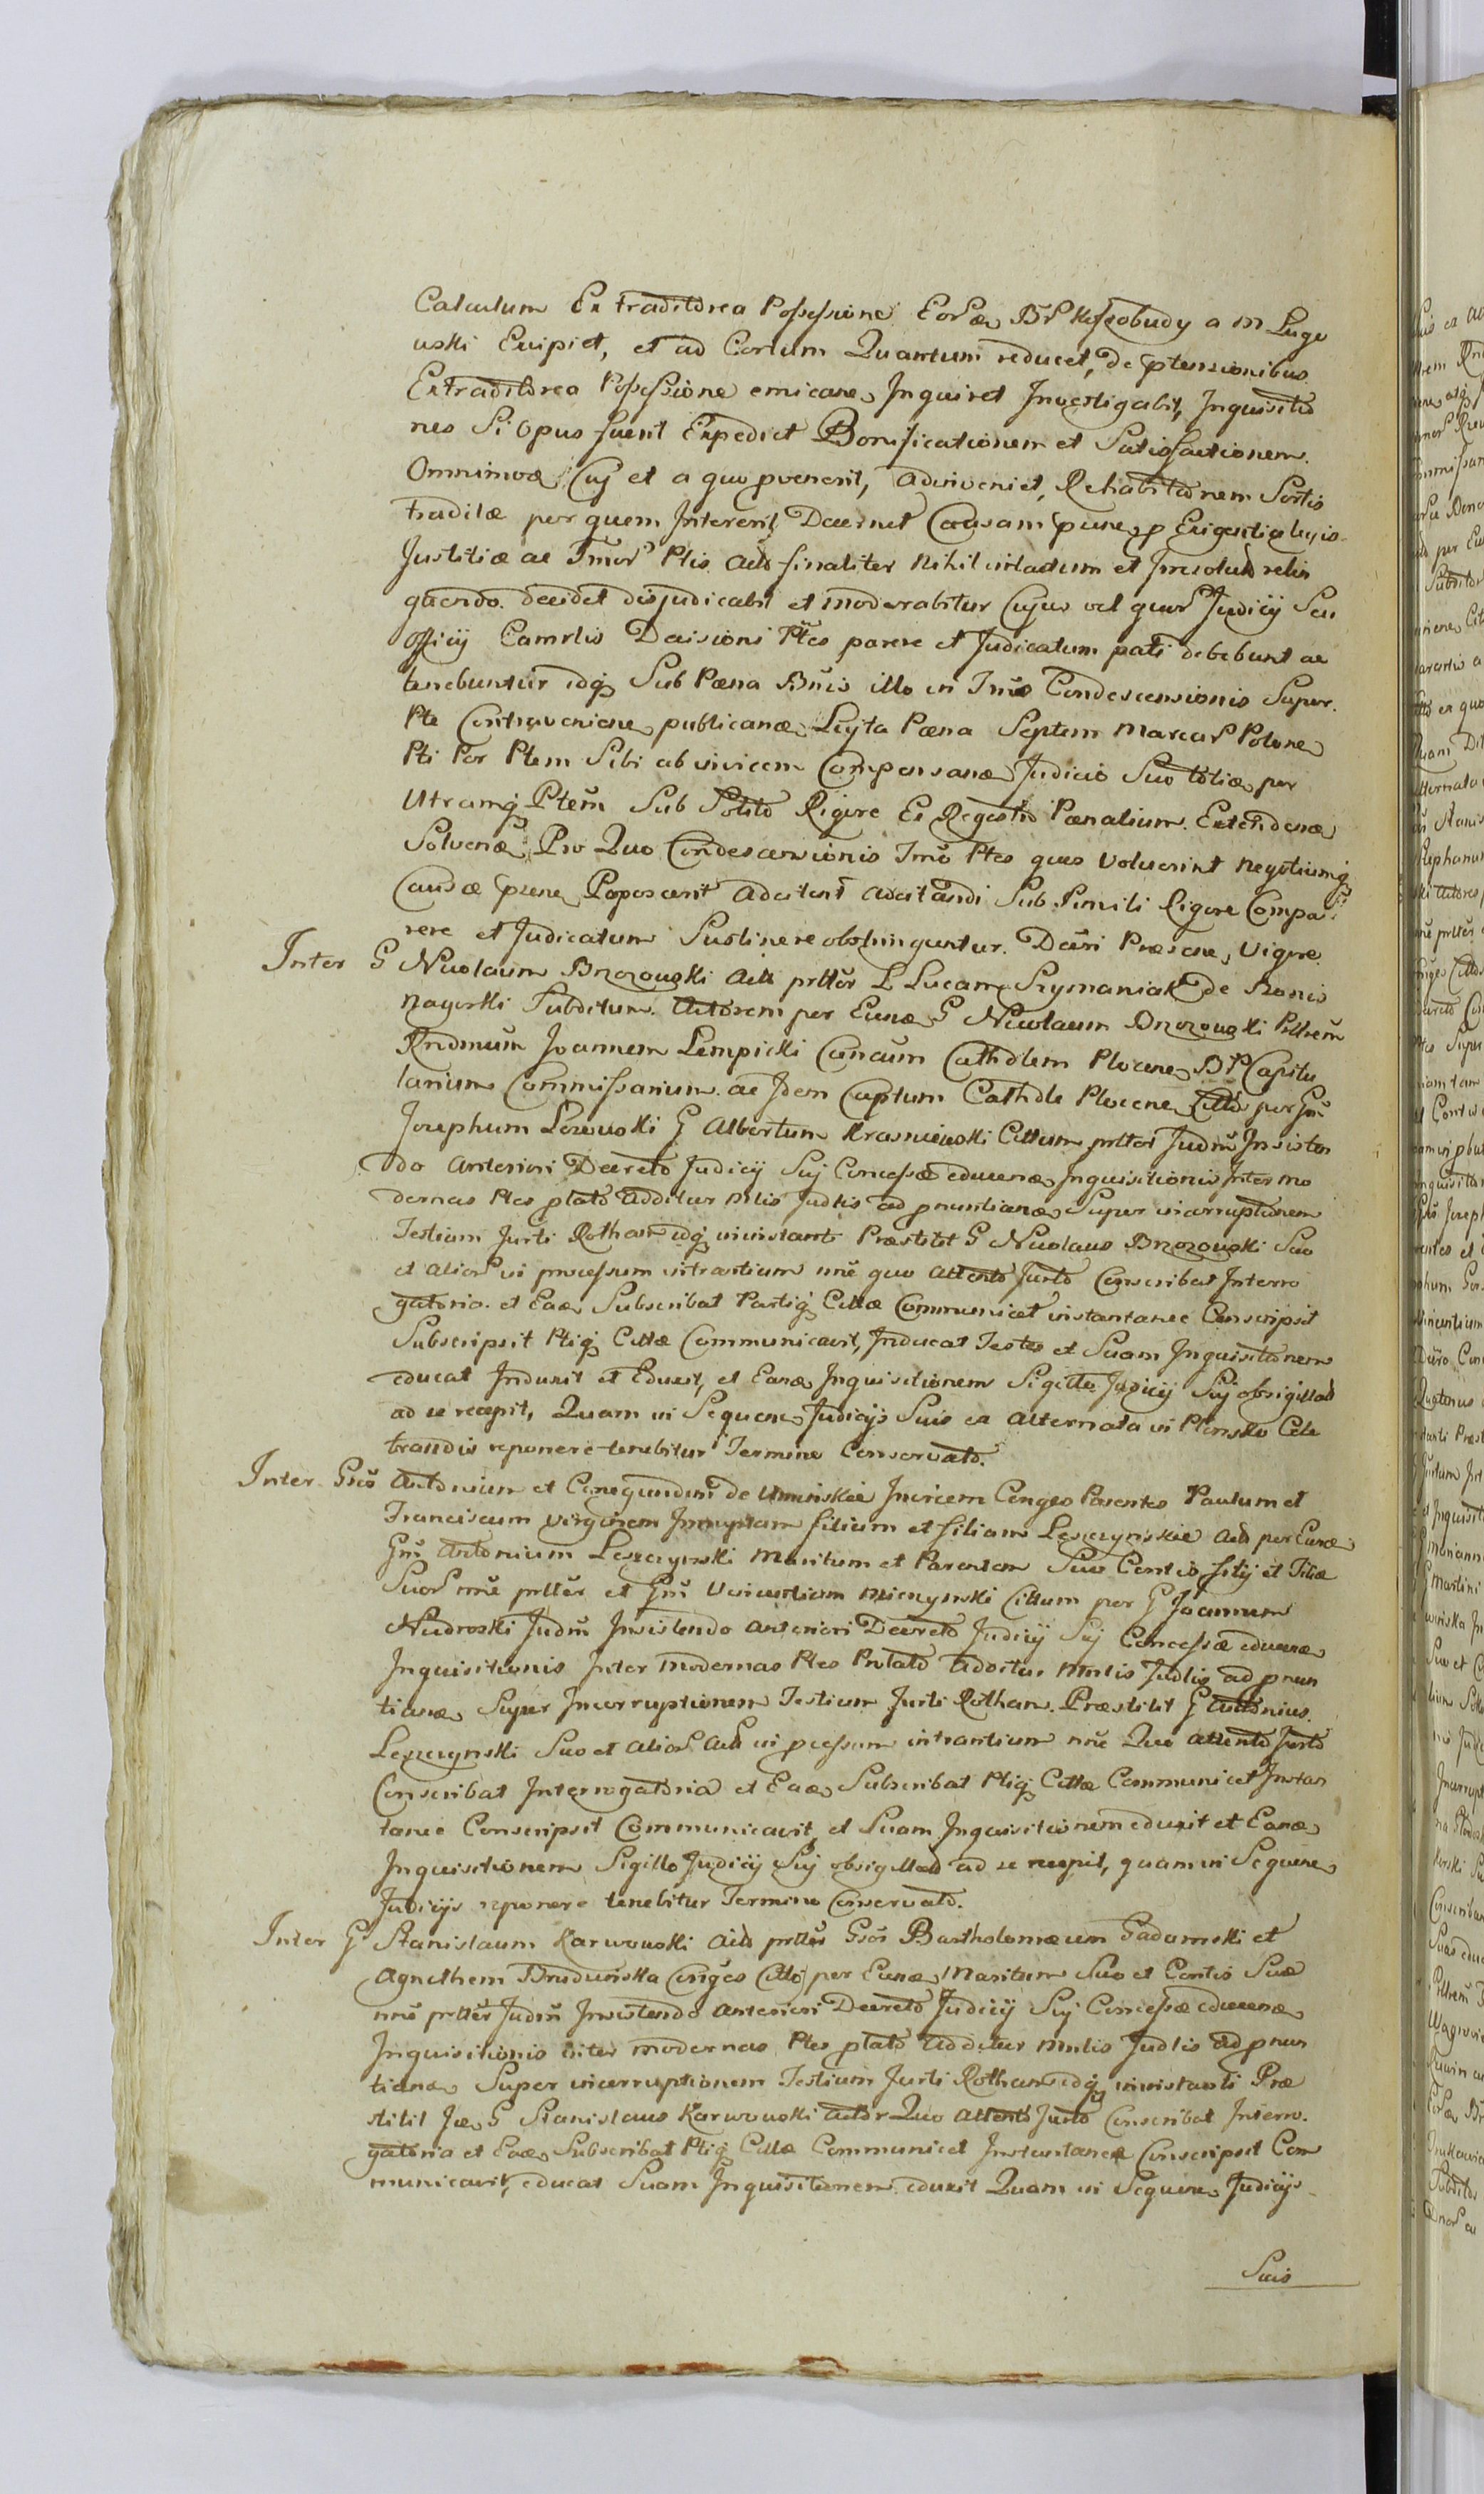 Calculum Ex traditorea Possessione Eor Bĩ Kossobudy a M Lugo
uski Excipiet, et ad Certum Quantum reducet, De ptensionibus
Ex traditorea Possessione emican Inquiret Investigabit, Inquisitio
nes Si Opus fuerit Expediet Bonificationem et Satisfactionem
Omnimodæ Cuj et a quo pvenerit, adinveniet, Rehabitionem Sortis
traditæ per quem Intererit Decernet Causam psnē p Exigentia legis
Justitiæ ac Tmor Ptis actō finaliter Nihil intactum et Iresolutō relin
quendo decidet disjudicabit et moderabitur Cujus vel quor Judicij Seu
Officij Camrlis Decisioni Ptes parere et Judicatum pati debebunt ac
tenebuntur idq Sub Pæna Bnis illo in Tmō Condescensionis Super
Pte Contraveniene publicanæ Lucta Pæna Septem Marcar Polone
Pti Per Ptem Sibi ab invicem Compensanæ Judicio Suo toties per
Utramq Ptem Sub Solito Rigore Ex Regestro Pænalium Extendenæ
Solvenæ Pro Quo Condescensionis Tmō Ptes quas Voluerint Negotiumq
Causæ psne Poposcerit adcitent adcitandi Sub Simili Rigore Compa
rere et Judicatum Sustinere obstringuntur. Decri Præsene Vigore
Inter G Nicolaum Brzozowski actō prttor L Lucam Szymaniak de Szonis
Nagorski Subditum Actorem per Eunē G Nicolaum Brzozowski Pttrem
Rndmum Joannem Lempicki Canūm Cathdlem Plocene Bĩ Capitu
larium Commissarium ac Idem Captum Cathdle Plocene Cittō per Gm
Josephum Lozowski G Albertum Krasniewski Cittum prttor Judm Insisten
do anteriori Decreto Judicij Sui Concessæ educenæ Inquisitionis Inter mo
dernas Ptes plato additur Mtlis Judlis ad pnuntianæ Super incorruptionem
Testium Jurti Rotham idq instanti Præstitit G Nicolaus Brzozowski Suo
et alior in processum intrantium nñe quo attento Jurto Conscribat Interro
gatoria et Eaē Subscribat Partiq Cittæ Communicet instantanee Conscripsit
Subscripsit Ptiq Cittæ Communicavit, Inducat Testes et Suam Inquisitionem
educat Induxit et Eduxit, et Eanē Inquisitionem Sigillo Judicij Sui obsigillatō
ad se recepit, Quam in Sequene Judicijs Suis ex alternata in Plonsko Cele
brandis reponere tenebitur Termino Conservato.
Inter Gsos Antonium et Cunegundem de Uminskie Invicem Conges Parentes Paulum et
Franciscam Virginem Innuptam filium et filiam Leszczynskie actō per Eunē
Gm Antonium Leszczynski Maritum et Parentem Suo Contis filij et Filiæ
Suor nñe prtter et Gm Vincentium Miczynski Cittum per G Joannem
Nudroski Judm Insistendo anteriori Decreto Judicij Sui Concessæ educenæ
Inquisitionis Inter modernas Ptes Prolato additur Mtlis Judlis ad pnun
tianæ Super Incorruptionem Testium Jurti Rotham. Præstitit G Antonius
Leszczynski Suo et alior actō in pcessum intrantium nñe Quo attento Jurto
Conscribat Interrogatoria et Eaē Subscribat Ptiq Cittæ Communicet Instan
tanee Conscripsit Communicavit, et Suam Inquisitionem eduxit et Eanē
Inquisitionem Sigillo Judicij Sui obsigillatō ad se recepit, quam in Sequene
Judicijs reponere tenebitur Termino Conservato.
Inter G Stanislaum Karwowski actō prtter Gsos Bartholomæum Gadomski et
Agnethem Brudunska Conges Cittō per Eunē Maritum Suo et Contis Suæ
nñe prtter Judm Insistendo anteriori Decreto Judicij Sui Concessæ educenæ
Inquisitionis inter modernas Ptes plato additur Mtlis Judlis ad pnun
tianæ Super incorruptionem Testium Jurti Rotham idq instanti Præ
stitit Iē G Stanislaus Karwowski Actor Quo attento Jurto Conscribat Interro
gatoria et Eaē Subscribat Ptiq Cittæ Communicet Instantanee Conscripsit Com
municavit, educat Suam Inquisitionem eduxit Quam in Sequene Judicijs
Suis